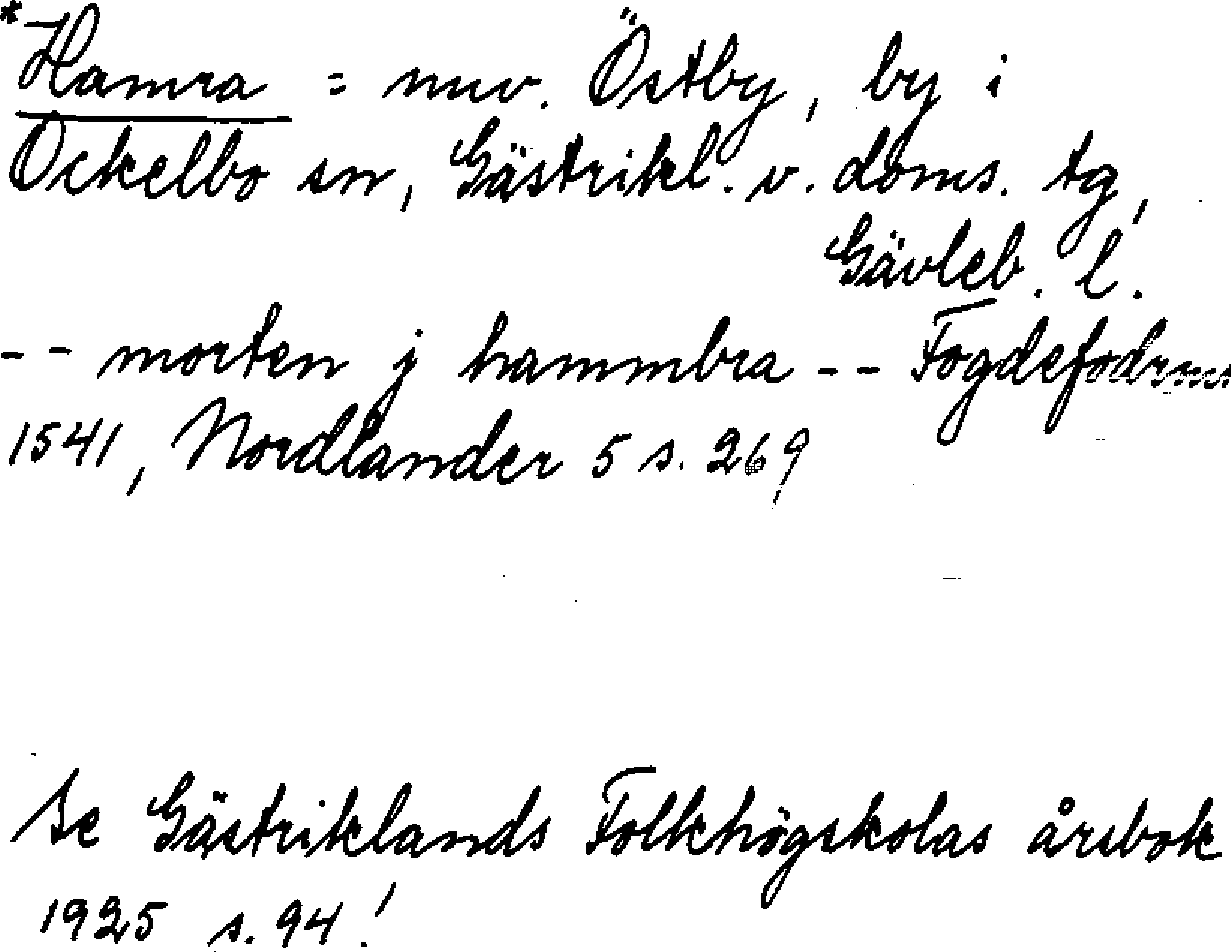 *Hamra = nuv. Östby, by i
Ockelbo sn, Gästrikl. v. doms. tg,
Gävleb. l.
-- morten j hammbra -- Fogdefodring
1541, Nordlander 5 s. 269
Se Gästriklands Folkhögskolas årsbok
1925 s. 94!